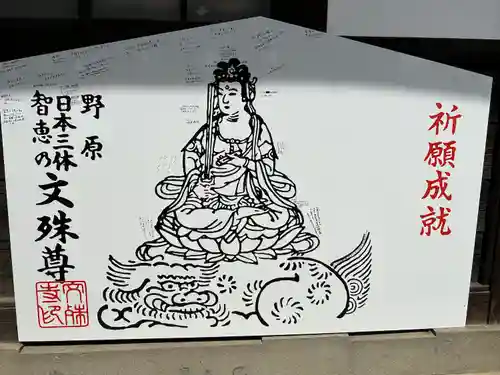 祈願成就
野原
日本三体
智恵の文殊尊
文殊寺印